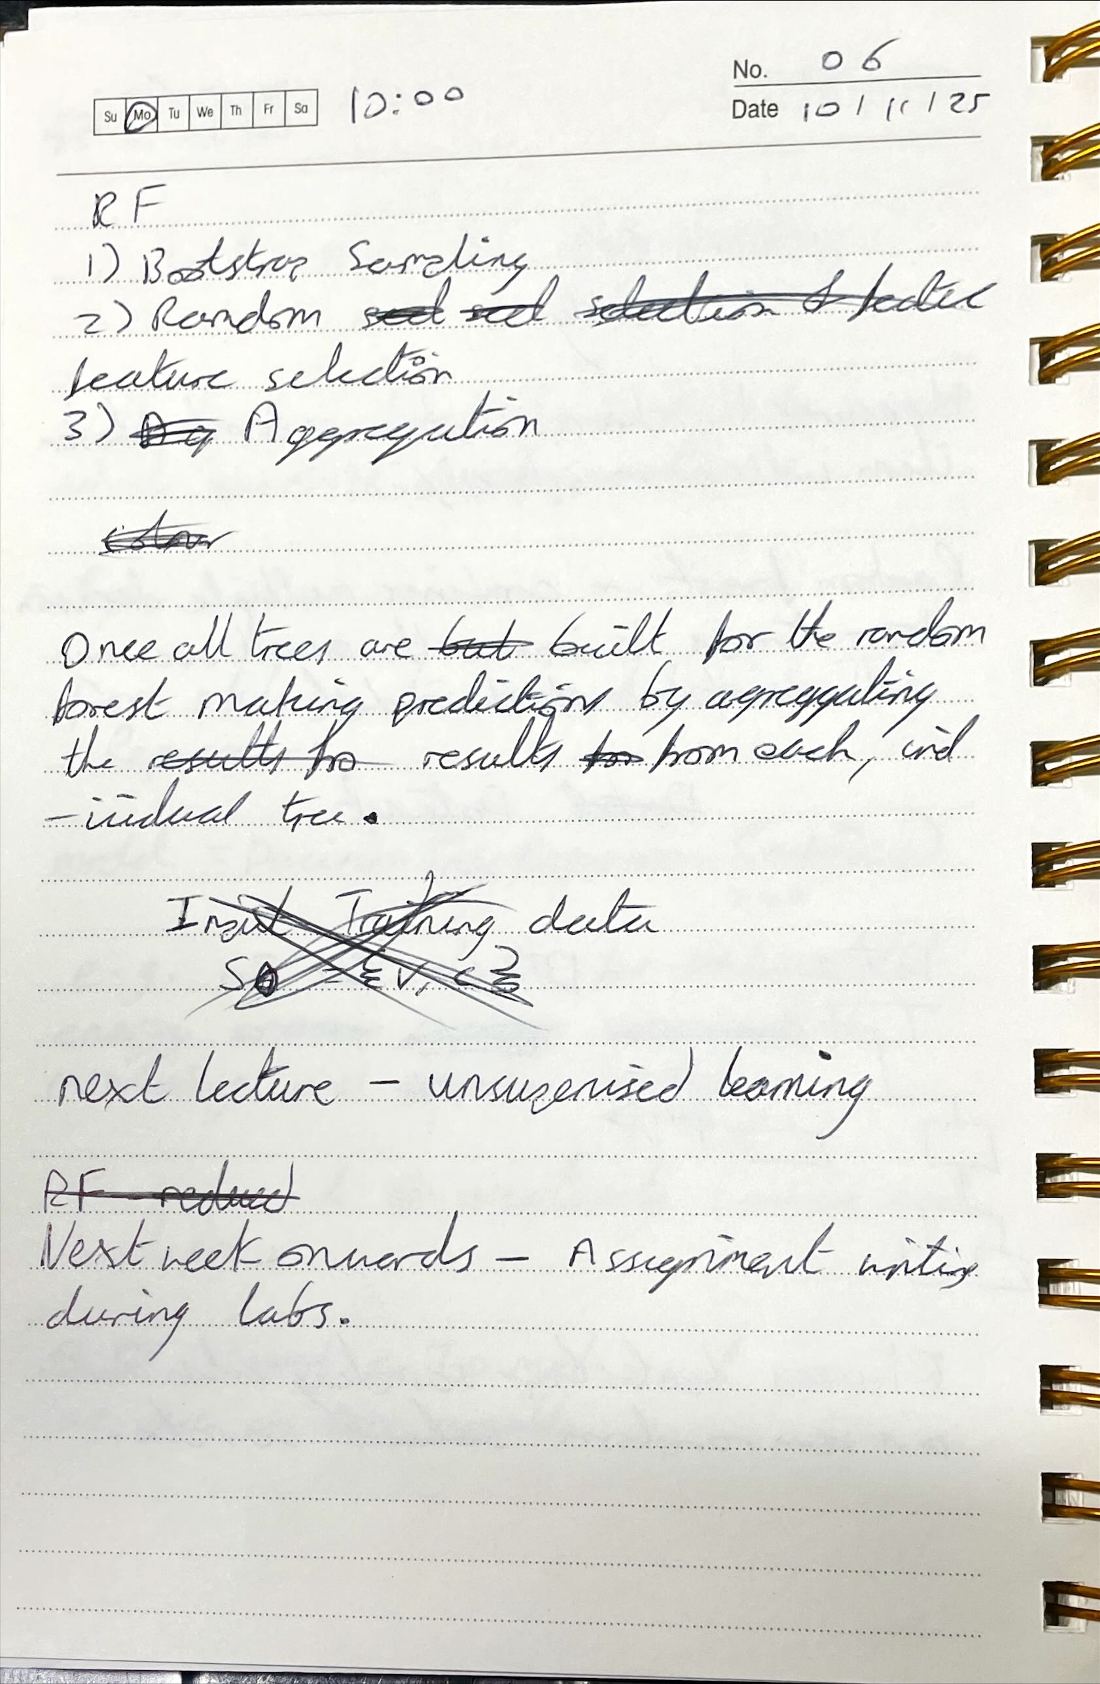 Su Mo Tu We Th Fr Sa 10:00
No. 06
Date 10/11/25
RF
1) Bootstrap Sampling
2) Random selection of
feature selection
3) Ag Aggregation
Once all trees are but built for the random
forest making predictions by agreggating
the results fro results from each, ind
-iidual tree.
Input Training data
S = {V, C}
next lecture - unsupervised learning
RF - reduced
Next week onwards - Assignment writing
during labs.